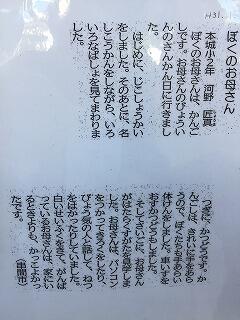 H31.
ぼくのお母さん
本城小2年 河野 匠真
ぼくのお母さんは、かんご
しです。お母さんのびょうい
んのさんかん日に行きまし
た。
はじめに、じこしょうかい
をしました。そのあとに、名
しこうかんをしながら、いろ
いろなばしょを見てまわりま
した。
つぎに、かつどうです。か
んごしは、きれいに手をあら
うので、ぼくたちも手あらい
体けんをしました。車いすを
おすかつどうもしました。
そしてさいごに、お母さん
がはたらくすがたを見学しま
した。お母さんが、パソコン
をつかってきろくをしたり、
びょう気の人と話して、おつ
をはかったりしていました。
白いせいふくをきて、がんば
っているお母さんは、家にい
るときよりも、かっこよかっ
たです。
(串間市)